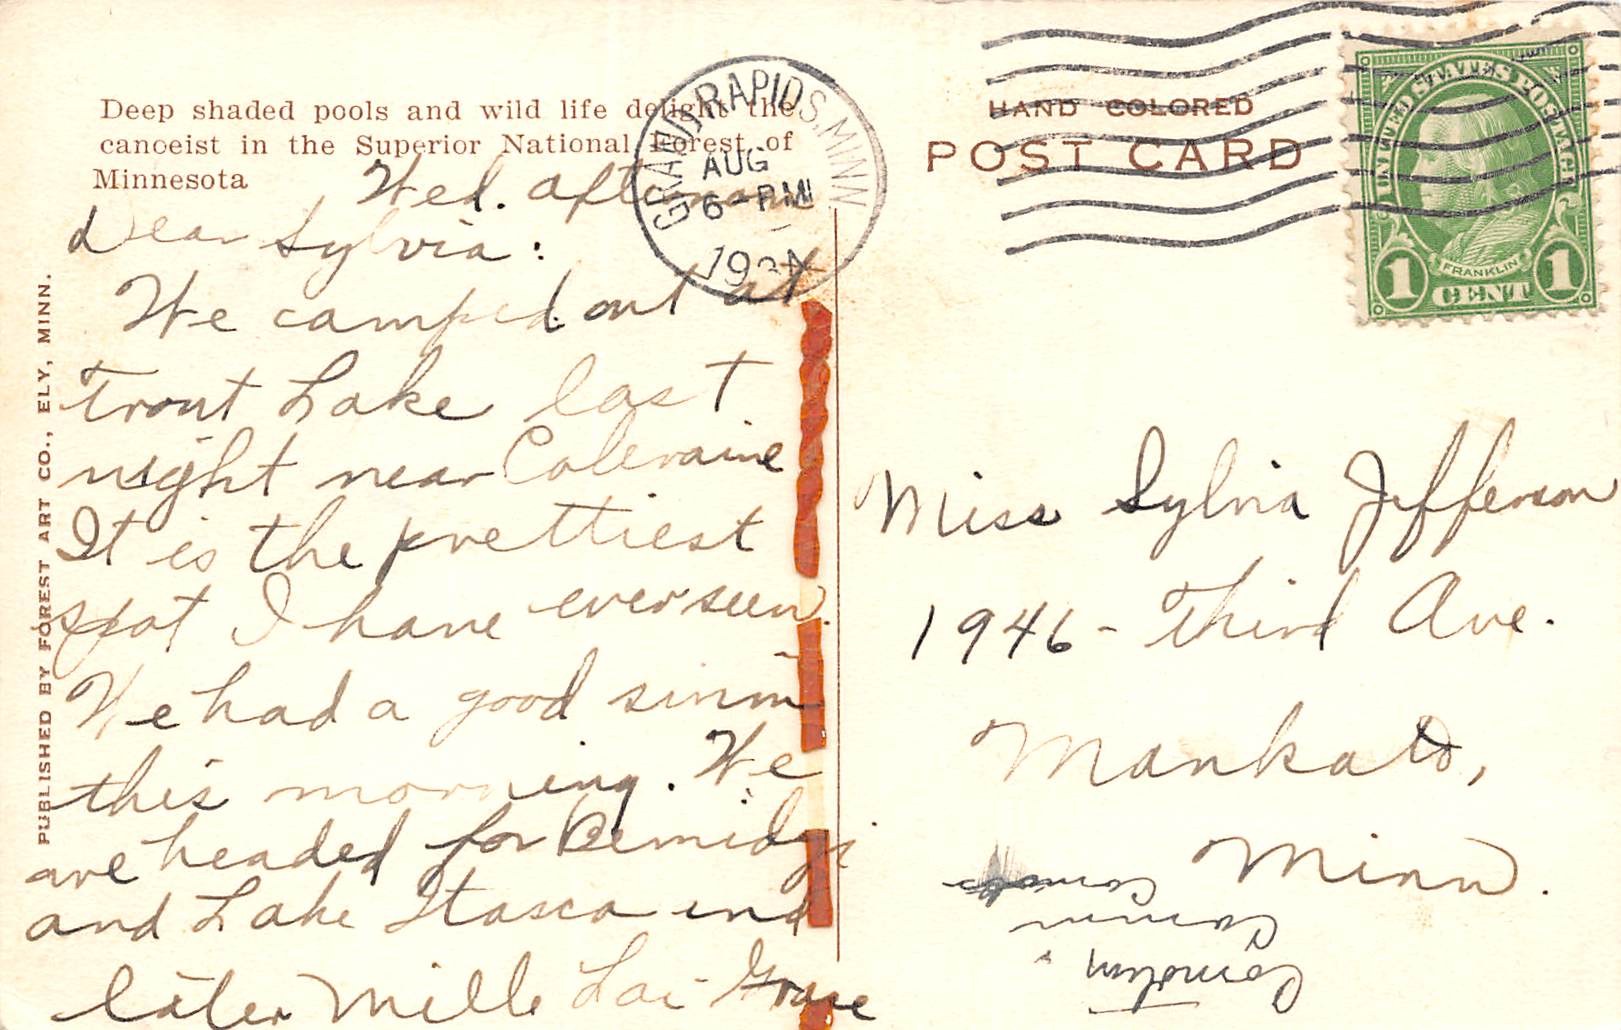 Deep shaded pools and wild life delight the
canoeist in the Superior National Forest of
Minnesota
Wed. afternoon
Dear Sylvia:
We camped out at
Trout Lake last
night near Coleraine
It is the prettiest
spot I have ever seen.
We had a good swim
this morning. We
are headed for Bemidji
and Lake Itasca and
later Mille Lac - Grace
PUBLISHED BY FOREST ART CO., ELY, MINN.
GRAND RAPIDS, MINN
AUG
6 - PM
HAND COLORED
POST CARD
UNITED STATES POSTAGE
FRANKLIN
1 CENT 1
Miss Sylvia Jefferson
1946 - Third Ave.
Mankato,
Minn.